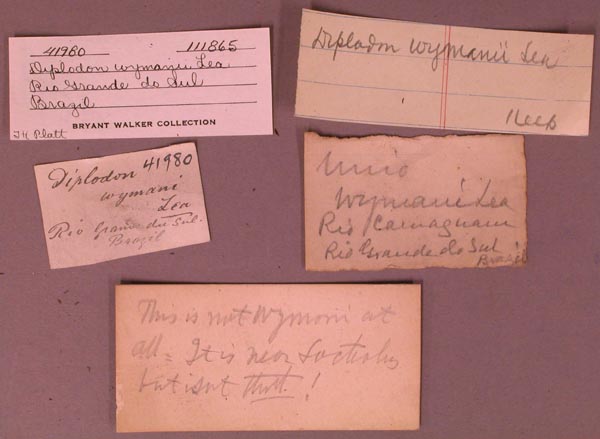 41980 111865
Diplodon wymanii Lea
Rio Grande do Sul
Brazil
BRYANT WALKER COLLECTION
Diplodon wymanii Lea
Keep
Diplodon 41980
wymani
Lea
Rio Grande du Sul.
Brazil
Unio
Wymani Lea
Rio Camaquam
Rio Grande do Sul
Brazil
This is not Wymani at
all = It is near
but isn't that!